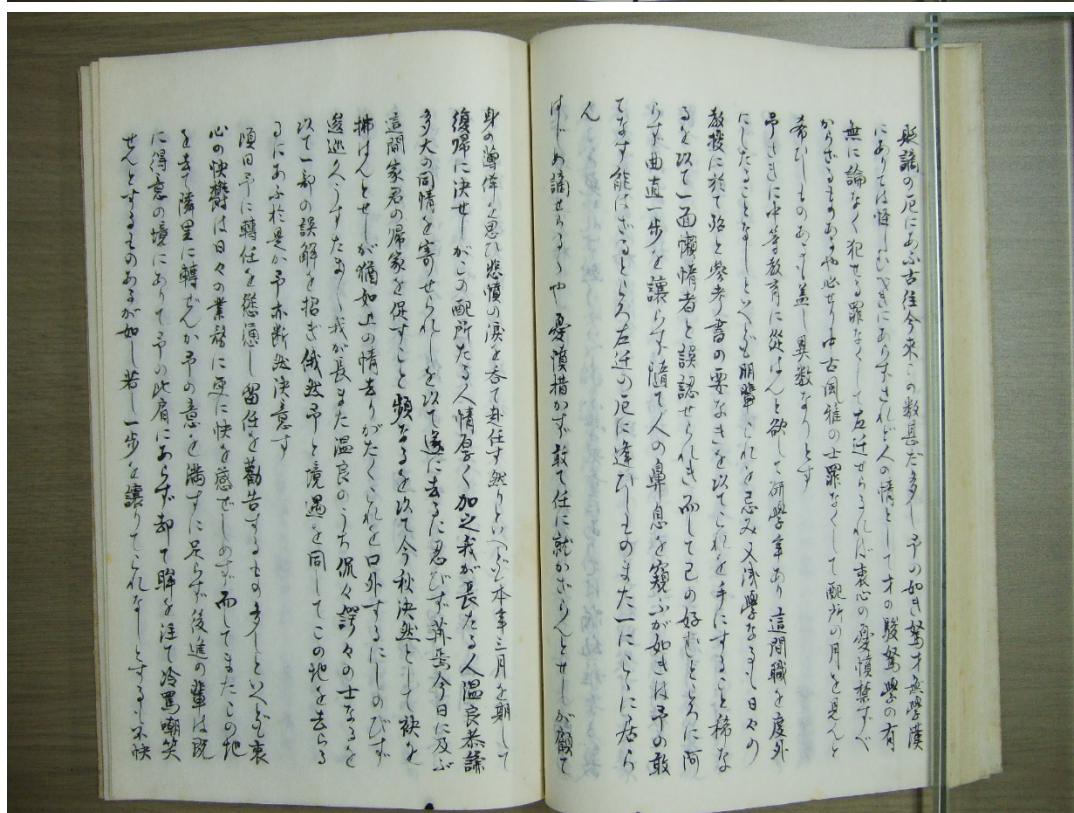 貶謫の厄にあふ古往今来この数甚だ多し予の如き駑才無學漢
にありては怪しむべきにあらずされど人の情として才の駿駑學の有
無に論なく犯せる罪なくして左迁せらるれば衷心の憂憤禁ずべ
からざるものあるや必せり中古風雅の士罪なくして配所の月を見んと
希ひしものあるは蓋し異数なりとす
予さきに中等教育に従はんと欲して研學年あり這間職を度外
にしたることなしといへども朋輩これを忌み又浅學なるも日々の
教授に於て殆と参考書の要なきを以てこれを手にすること稀な
るを以て一面懶惰者と誤認せられき而して己の好むところに阿
らず曲道一歩を譲らず随て人の鼻息を窺ふが如きは予の敢
てなす能はざるところ左迁の厄に逢ひしものまた一にこゝに居ら
ん
はじめ謫せらるゝや憂憤措かず敢て任に就かざらんとせしが顧て
身の薄倖を思ひ悲憤の涙を呑て赴任す然りといへども本年三月を期して
復帰に決せしがこの配所たる人情厚く加之我が長たる人温良恭謙
多大の同情を寄せられしを以て遂に去るに忍びず荏苒今日に及ぶ
這間家君の帰家を促すこと頻なるを以て今秋決然として袂を
拂はんとせしが猶如上の情去りがたくこれを口外するにしのびず
逡巡久うすたま〻我が長また温良のうち侃々諤々の士なるを
以て一部の誤解を招ぎ俄然予と境遇を同してこの地を去らる
るにあふ於是か予亦断然決意す
頃日予に轉任を慫慂し留任を勸告するもの多しといへども衷
心の快欝は日々の業務に更に快を感ぜしめず而してまたこの地
を去て隣里に轉ぜんか予の意を満すに足らず後進の輩は既
に得意の境にありて予の比肩にあらず却て眸を注て冷罵嘲笑
せんとするものあるが如し若し一歩を譲りてこれなしとするも不快